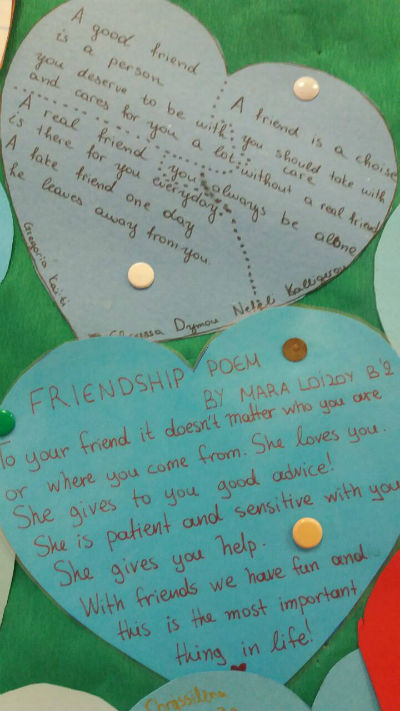 A good friend
is a person
you deserve to be with
and cares for you a lot.
A real friend
is there for you everyday.
A fake friend one day
he leaves away from you.
Gregoria
A friend is a choise
you should take with
care
without a real friend
you always be alone
Dymou Nefeli
FRIENDSHIP POEM
BY MARA LOIZOY B'2
To your friend it doesn't matter who you are
or where you come from. She loves you.
She gives to you good advice!
She is patient and sensitive with you
She gives you help.
With friends we have fun and
this is the most important
thing in life!